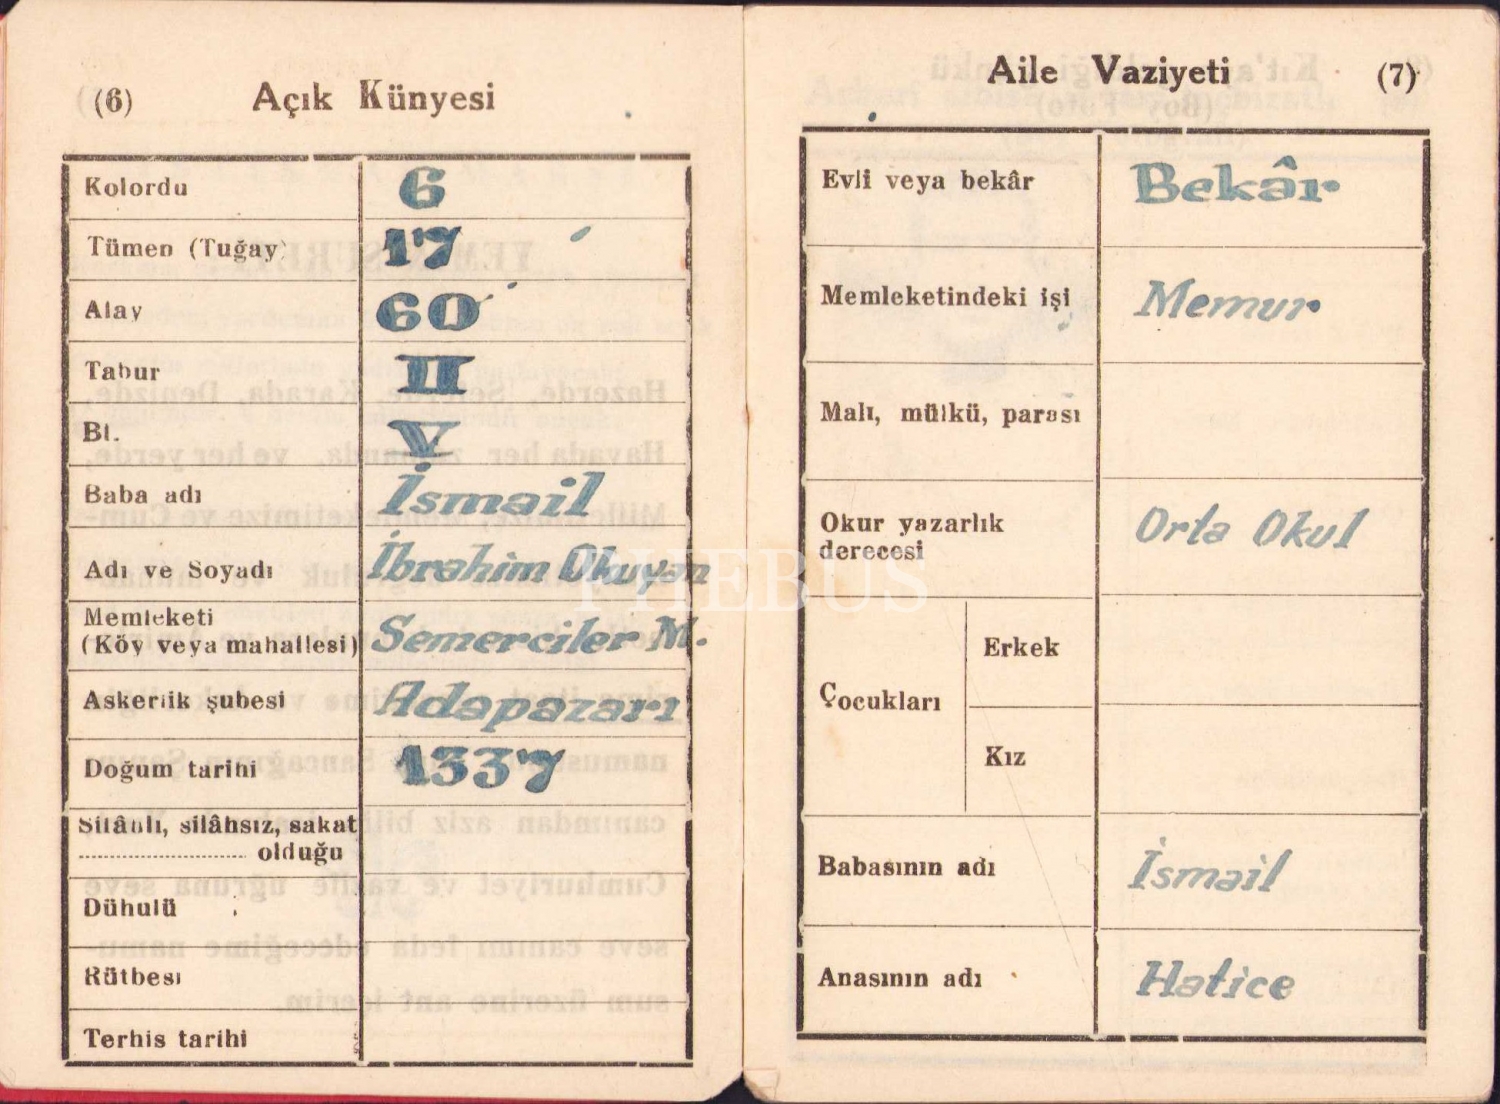 (6) Açık Künyesi
Kolordu 6
Tümen (Tuğay) 17
Alay 60
Tabur II
Bl. V
Baba adı İsmail
Adı ve Soyadı İbrahim Okuyan
Memleketi
(Köy veya mahallesi) Semerciler M.
Askerlik şubesi Adapazarı
Doğum tarihi 1337
Silâhlı, silâhsız, sakat
olduğu
Dühulü
Rütbesi
Terhis tarihi
Aile Vaziyeti (7)
Evli veya bekâr Bekâr
Memleketindeki işi Memur
Malı, mülkü, parası
Okur yazarlık
derecesi
Orta Okul
Çocukları
Erkek
Kız
Babasının adı İsmail
Anasının adı Hatice
PHEBUS